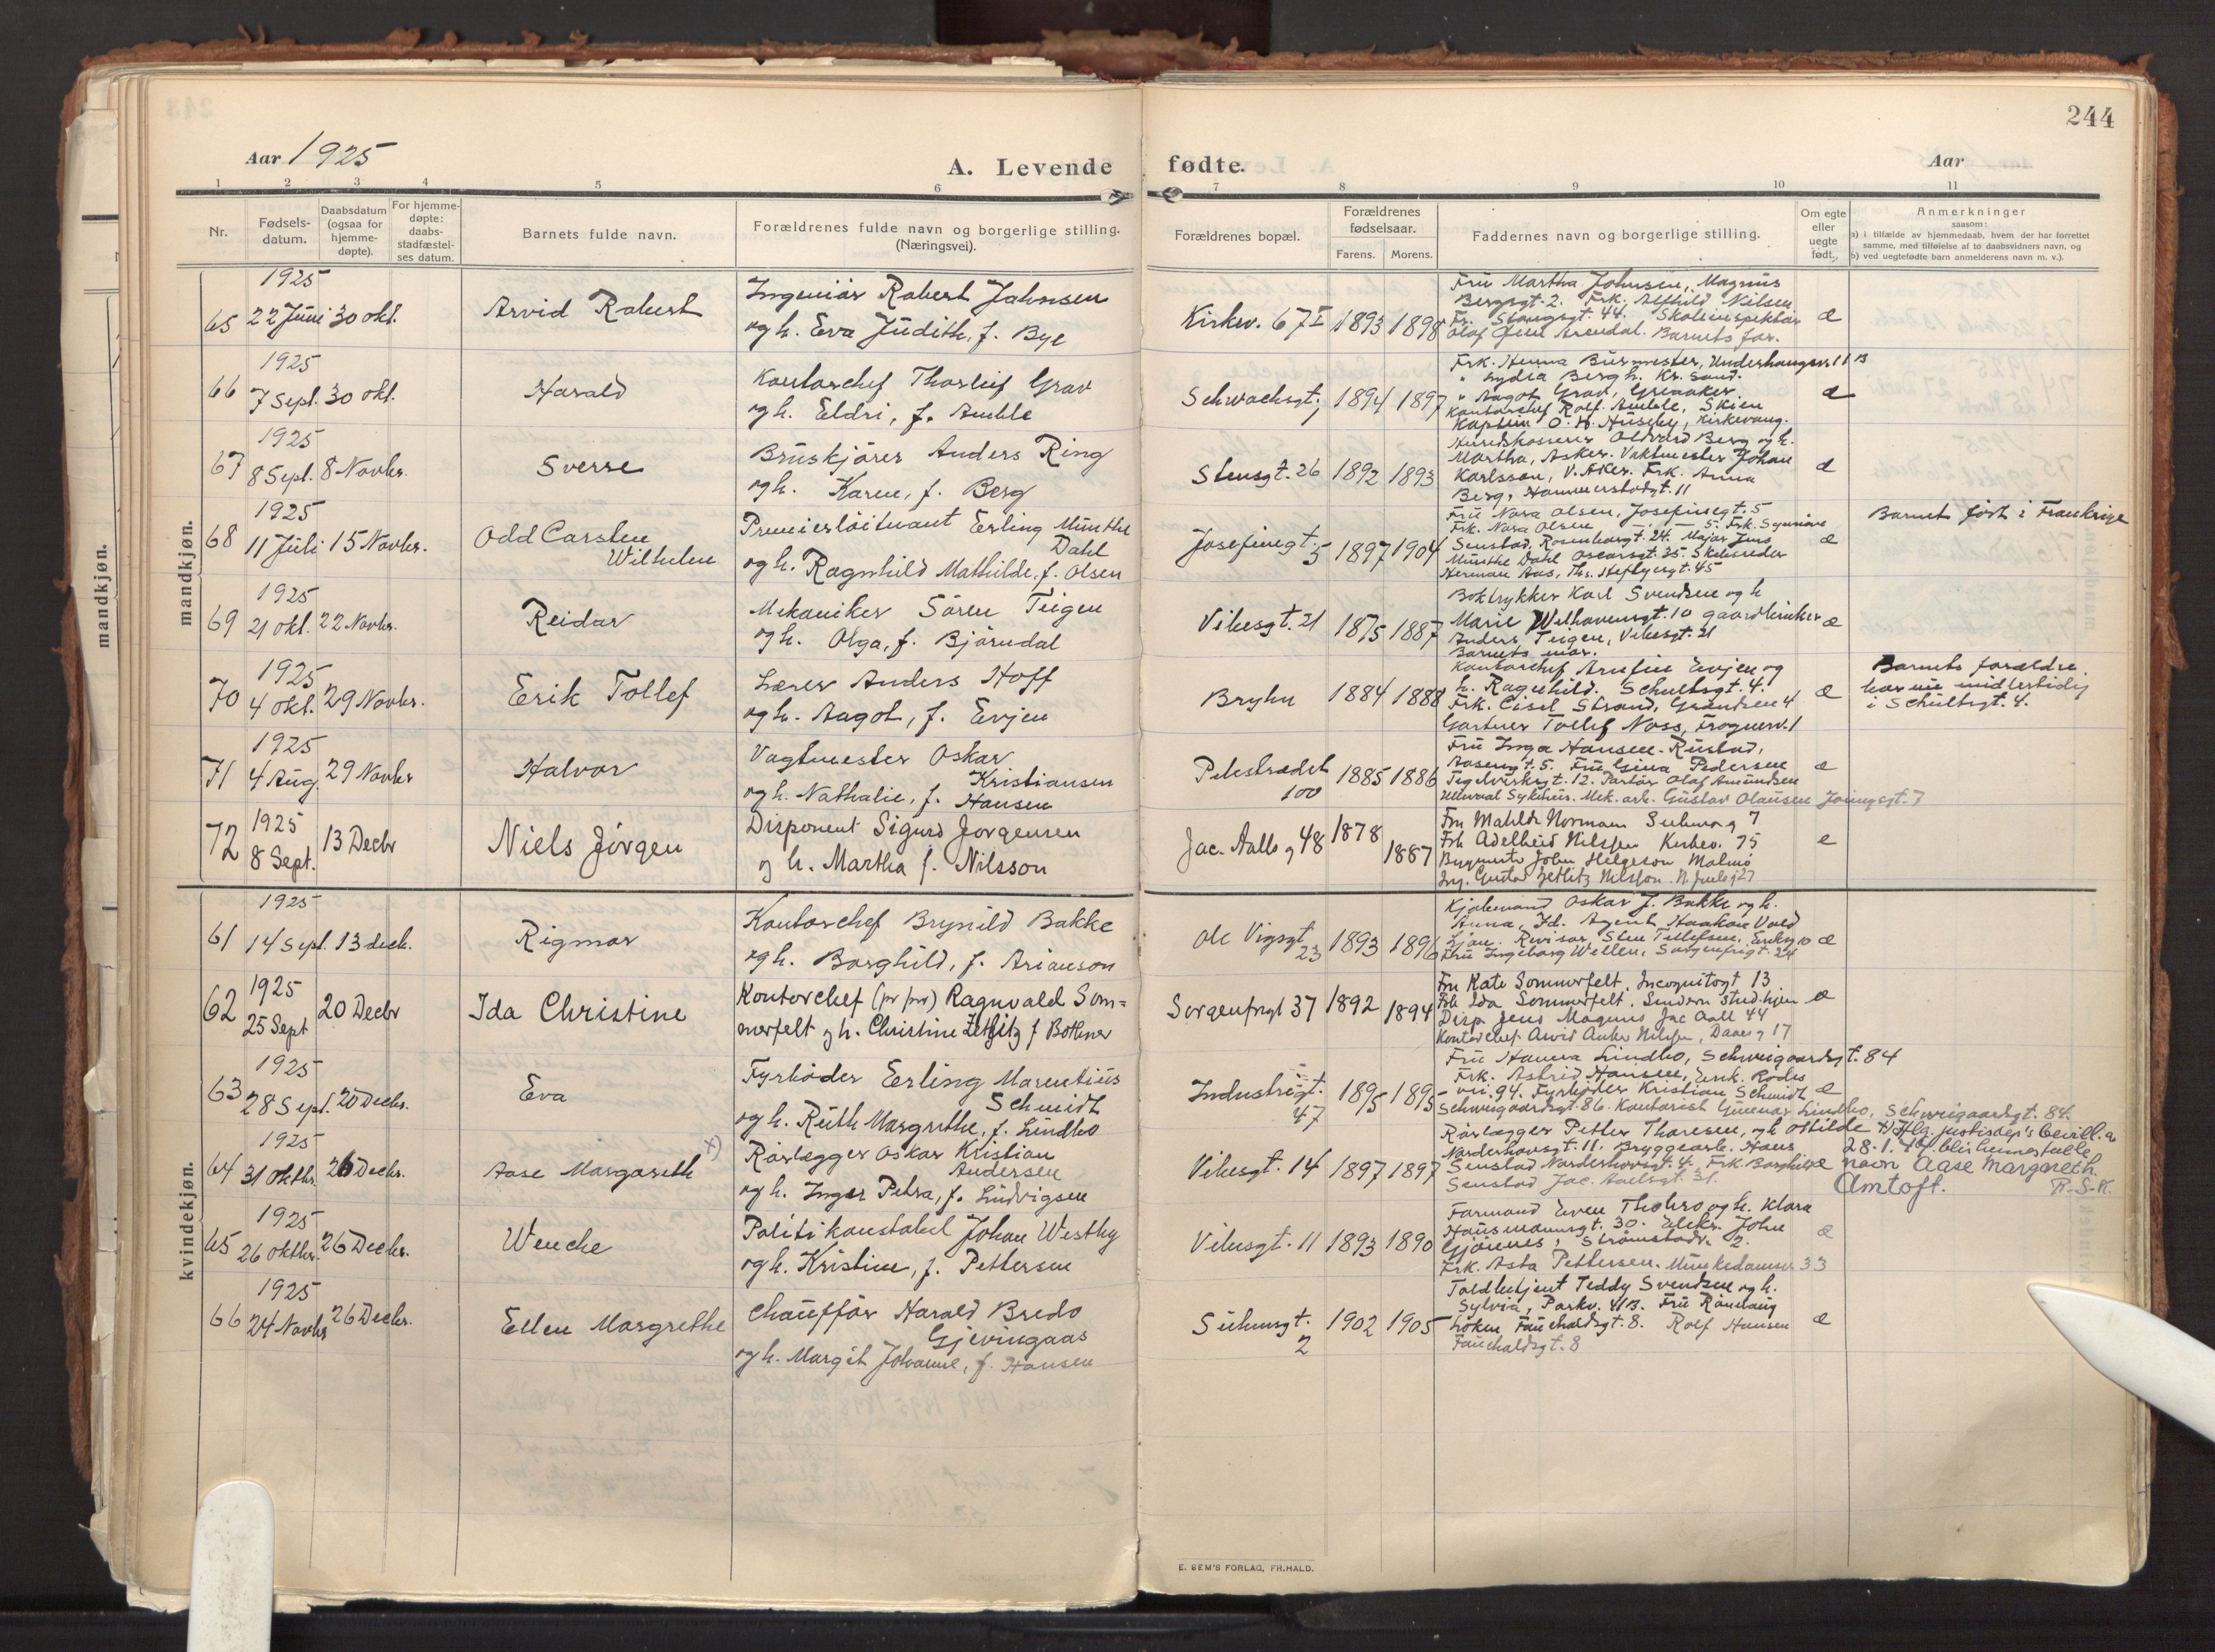 244
Aar 1925
A. Levende
fødte.
Aar
1 2 3 4 5 6
7 8 9 10 11
Nr.
Fødsels-
datum.
Daabsdatum
(ogsaa for
hjemme-
døpte).
For hjemme-
døpte:
daabs-
stadfæstel-
ses datum.
Barnets fulde navn.
Forældrenes fulde navn og borgerlige stilling.
(Næringsvei).
Forældrenes bopæl.
Forældrenes
fødselsaar.
Farens. Morens.
Faddernes navn og borgerlige stilling.
Om egte
eller
uegte
født.
Anmerkninger
saasom:
a) i tilfælde av hjemmedaab, hvem der har forrettet
samme, med tilføielse af to daabsvidners navn, og
b) ved uegtefødte barn anmelderens navn m. v.).
mandkjøn.
mandkjøn.
1925
65 22 Juni 30 okt.
Arvid Robert
Ingeniör Robert Johnsen
og h. Eva Judith, f. Bye
Kirkev. 67 I 1893 1898
Fru Martha Johnsen, Magnus
Bergsgt. 2. Frk. Alfhild Nilsen
Fr. Stangsgt. 44. Skoleinspektör
Olaf Arendal. Barnets far.
æ
1925
66 7 Sept. 30 okt.
Harald
Kontorchef Thorleif Grav
og h. Eldri, f. Amble
Schwachsgt. 1 1894 1897
Frk. Henna Burmester, Underhaugsv. 11 B
" Lydia Bergh. Kr. sand.
" Aagot Grav, Greaaker
Kontorchef Rolf Amble, Skien
Kaptein O. H. Huseby, Kirkevang.
æ
1925
67 8 Sept. 8 Novbr.
Sverre
Bruskjører Anders Ring
og h. Karen, f. Berg
Stensgt. 26 1892 1893
Herredskasserer Oldvard Berg og h.
Martha, Asker. Vaktmester Johan
Karlsson, V. Aker. Frk. Anna
Berg, Hammerstadgt. 11
æ
1925
68 11 Juli 15 Novbr.
Odd Carsten
Wilhelm
Premierlöitnant Erling Munthe
Dahl
og h. Ragnhild Mathilde, f. Olsen
Josefinegt.
5 1897 1904
Fru Nora Olsen, Josefinegt. 5
Frk. Nora Olsen — " — 5. Frk. Synnöve
Senstad, Rosenborggt. 24. Major Jens
Munthe Dahl Oscarsgt. 35. Skibsreder
Herman Aas, Ths. Heftyesgt. 45
æ
Barnet født i Frankrige
1925
69 21 okt. 22 Novbr.
Reidar
Mekaniker Sören Teigen
og h. Olga, f. Björndal
Vibesgt. 21 1875 1887
Boktrykker Karl Svendsen og h
Marie Welhavensgt. 10 gaardbruker
Anders Teigen, Vibesgt. 21
Barnets mor.
æ
1925
70 4 okt. 29 Novbr.
Erik Tollef
Lærer Anders Hoff
og h. Aagot, f. Evjen
Bryhn 1884 1888
Kontorchef Arnfin Evjen og
h. Ragnhild. Schultsgt. 4.
Frk. Cisel Strand, Grændsen 4
Gartner Tollef Noss, Frognerv. 1
æ
Barnets forældre
bor nu midlertidig
i Schultsgt. 4.
1925
71 4 Aug. 29 Novbr
Halvor
Vagtmester Oskar
Kristiansen
og h. Nathalie, f. Hansen
Pilestrædet
100 1885 1886
Fru Inga Hansen-Rustad,
Aasengt. 5. Fru Gina Pedersen
Teglverksgt. 12. Portör Olaf Amundsen
Ullevaal Sykehus. Mek. arb. Gustav Olausen
æ
1925
72 8 Sept. 13 Decbr
Niels Jörgen
Disponent Sigurd Jørgensen
og h. Martha f. Nilsson
Jac. Aalls g 48 1878 1887
Fru Mahlde Normann Suhmsg 7
Frk Adelheid Nilsson Kirkev. 75
Bygmester John Helgeson Malmö
Ing. Gustav Zetlitz Nilsson. N. Juels g 27
e
kvindekjøn.
1925
61 14 Sept. 13 decb.
Rigmor
Kontorchef Brynild Bakke
og h. Borghild, f. Arianson
Ole Vigsgt.
23 1893 1896
Oskar J. Bakke og h.
Anna, Agent Haakon Vold
Ljan. Revisor Sten Tellefsen,
Fru Ingeborg Willen, Sorgenfrigt. 24
æ
1925
62 25 Sept 20 Decbr
Ida Christine
Kontorchef (pr pr) Ragnvald Som=
merfelt og h. Christine Zetlitz f Bothner
Sorgenfrigt 37 1892 1894
Fru Kate Sommerfelt, Incognitogt 13
Frk Ida Sommerfelt, stud.hjem
Disp Jens Magnus Jac Aall 44
Kontorchef Arvid Anker Nilsson, Daaes g 17
æ
1925
63 28 Sept. 20 Decbr.
Eva
Fyrböder Erling Marentius
Schmidt
og h. Ruth Margrethe, f. Lindbo
Industrigt.
47 1895 1895
Fru Hanna Lindbo, Schweigaardsgt. 84
Frk. Astrid Hansen, Enk. Rodes
vei 94. Fyrböder Kristian Schmidt
Schweigaardsgt. 86. Kontorist Gunnar Lindbo, Schweigaardsgt. 84.
æ
1925
64 31 Oktbr. 26 Decbr.
Aase Margareth x)
Rörlægger Oskar Kristian
Andersen
og h. Inger Petra, f. Ludvigsen
Vibesgt. 14 1897 1897
Rörlægger Petter Thoresen, og h Ottilde
Norderhovsgt. 11. Bryggearb. Hans
Senstad Norderhovsgt. 4. Frk. Borghild
Senstad Jac. Aallsgt. 31.
æ
x) Iflg. justisdep's bevill. av
28.1.44 blir hennes fulle
navn Aase Margareth
Amtoft.
1925
65 26 oktbr. 26 Decbr.
Wenche
Politikonstabel Johan Westby
og h. Kristine, f. Pettersen
Vibesgt. 11 1893 1890
Formand Even Thobro og h. Klara
Hausmannsgt. 30. Elektr. John
Gjönnes, Strömstadv. 2.
Frk. Asta Pettersen. Munkedamsv. 33
æ
1925
66 24 Novbr 26 Decbr.
Ellen Margrethe
Chaufför Harald Bredo
Gjevingaas
og h. Margit Johanne, f. Hansen
Suhmsgt.
2 1902 1905
Toldbetjent Teddy Svendsen og h.
Sylvia, Parkv. 41 B. Fru Rönnaug
Löken Fauchaldsgt. 8. Rolf Hansen
Fauchaldsgt. 8
æ
E. SEM'S FORLAG, FR.HALD.